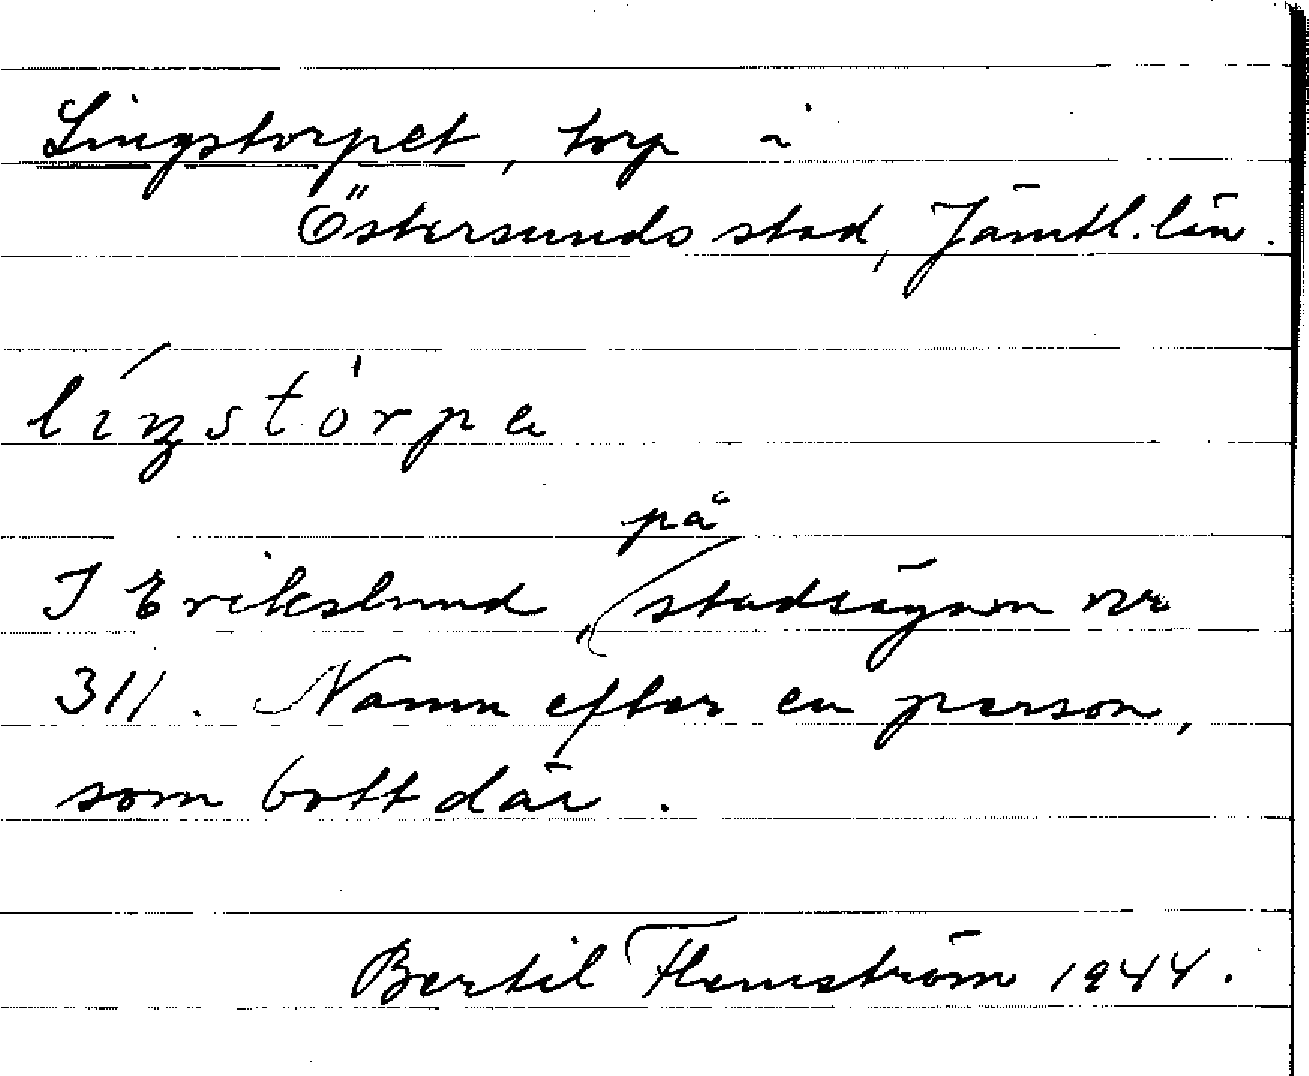 Lingstorpet, torp i
Östersunds stad, Jämtl. län.
líŋstòrpa
på
I Erikslund, stadsägan nr
311. Namn efter en person,
som bott där.
Bertil Flemström 1944.